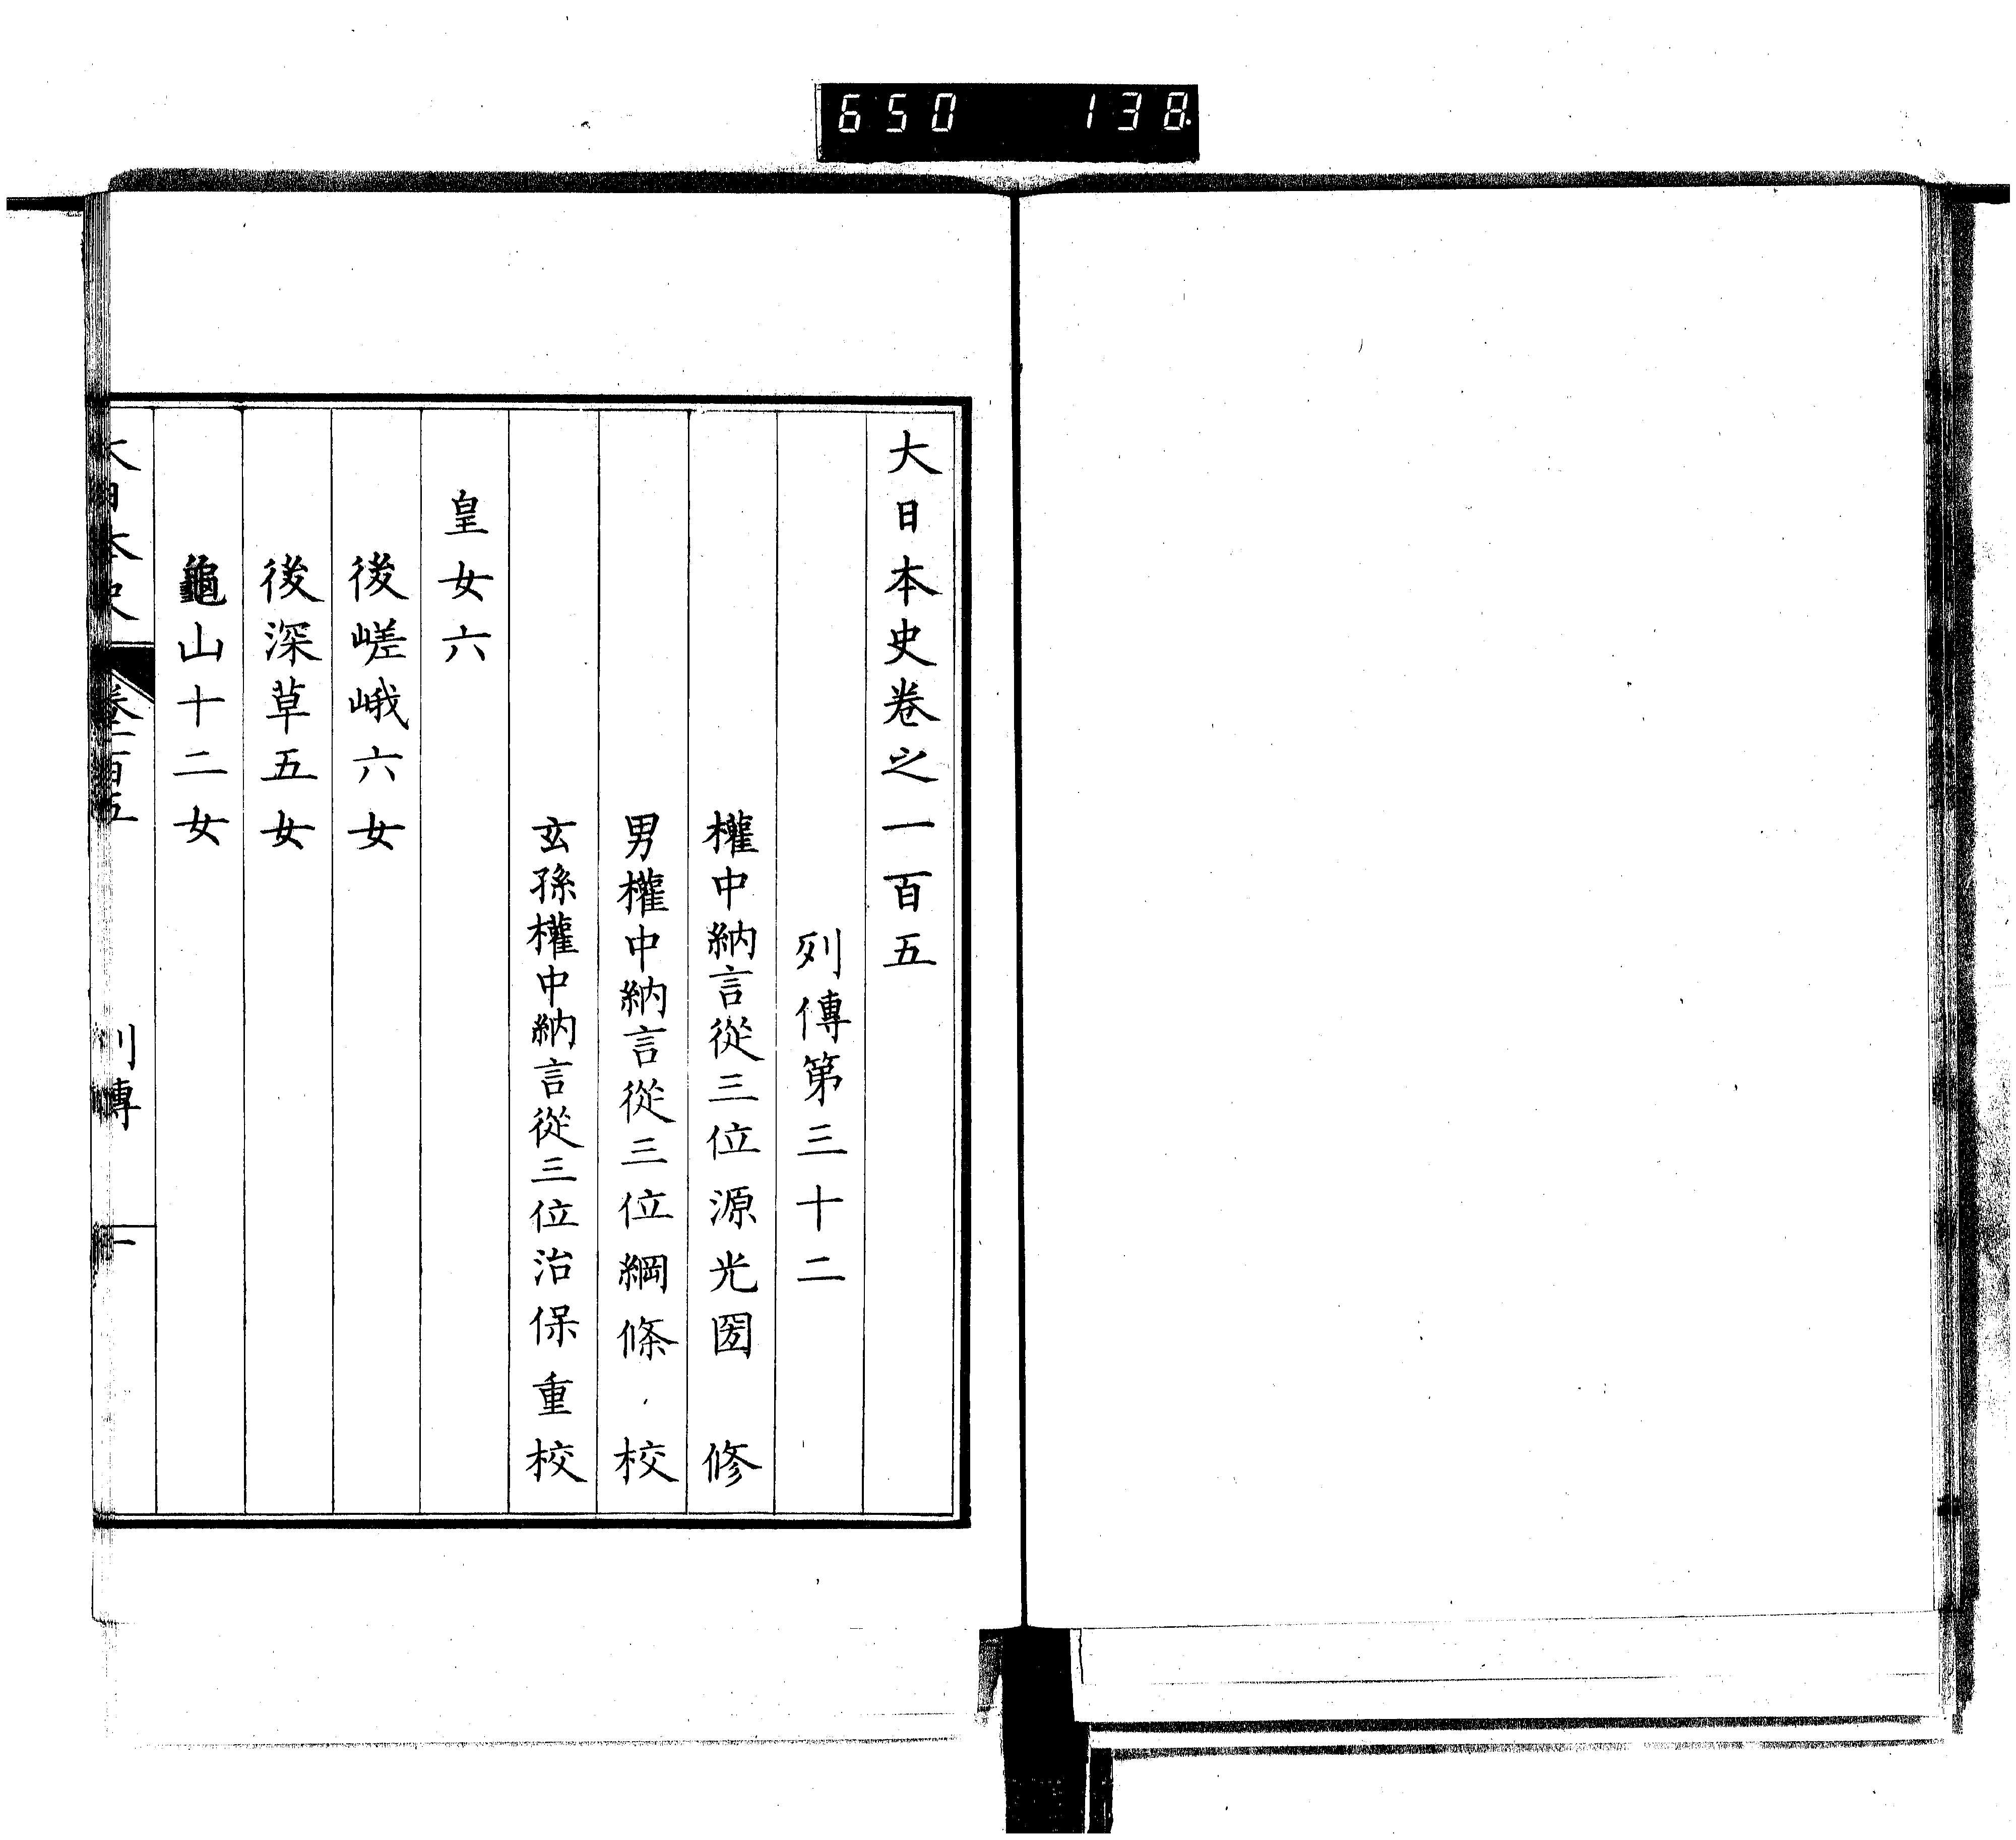 650 138
大日本史卷之一百五
列傳第三十二
權中納言從三位源光圀 修
男權中納言從三位綱條 校
玄孫權中納言從三位治保重校
皇女六
後嵯峨六女
後深草五女
龜山十二女
大日本史 卷一百五 列傳 一